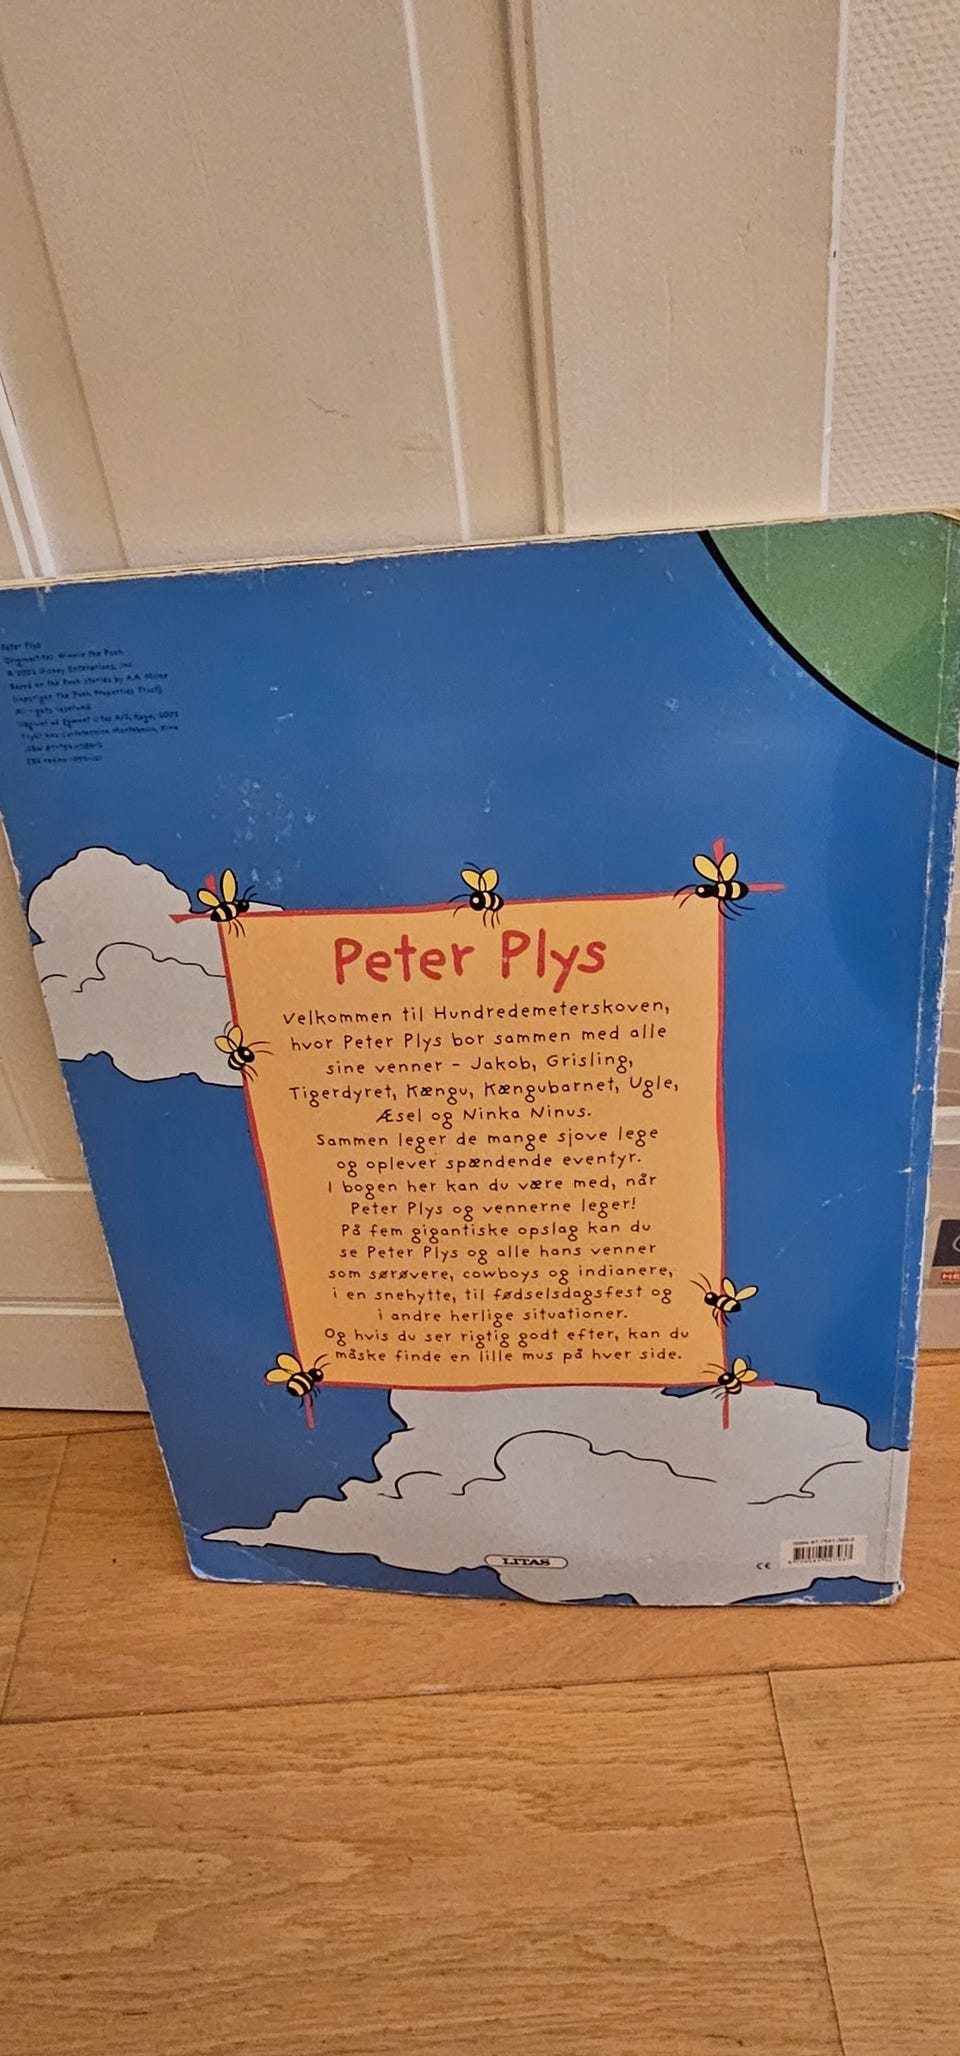 Peter Plys
Originaltitel: Winnie the Pooh
© 2002 Disney Enterprises, Inc.
Based on the Pooh stories by A.A. Milne
(copyright The Pooh Properties Trust)
All rights reserved.
Udgivet af Egmont Litas A/S, 2003
Kina
ISBN
Peter Plys
Velkommen til Hundredemeterskoven,
hvor Peter Plys bor sammen med alle
sine venner - Jakob, Grisling,
Tigerdyret, Kængu, Kængubarnet, Ugle,
Æsel og Ninka Ninus.
Sammen leger de mange sjove lege
og oplever spændende eventyr.
I bogen her kan du være med, når
Peter Plys og vennerne leger!
På fem gigantiske opslag kan du
se Peter Plys og alle hans venner
som sørøvere, cowboys og indianere,
i en snehytte, til fødselsdagsfest og
i andre herlige situationer.
Og hvis du ser rigtig godt efter, kan du
måske finde en lille mus på hver side.
LITAS
CE
ISBN